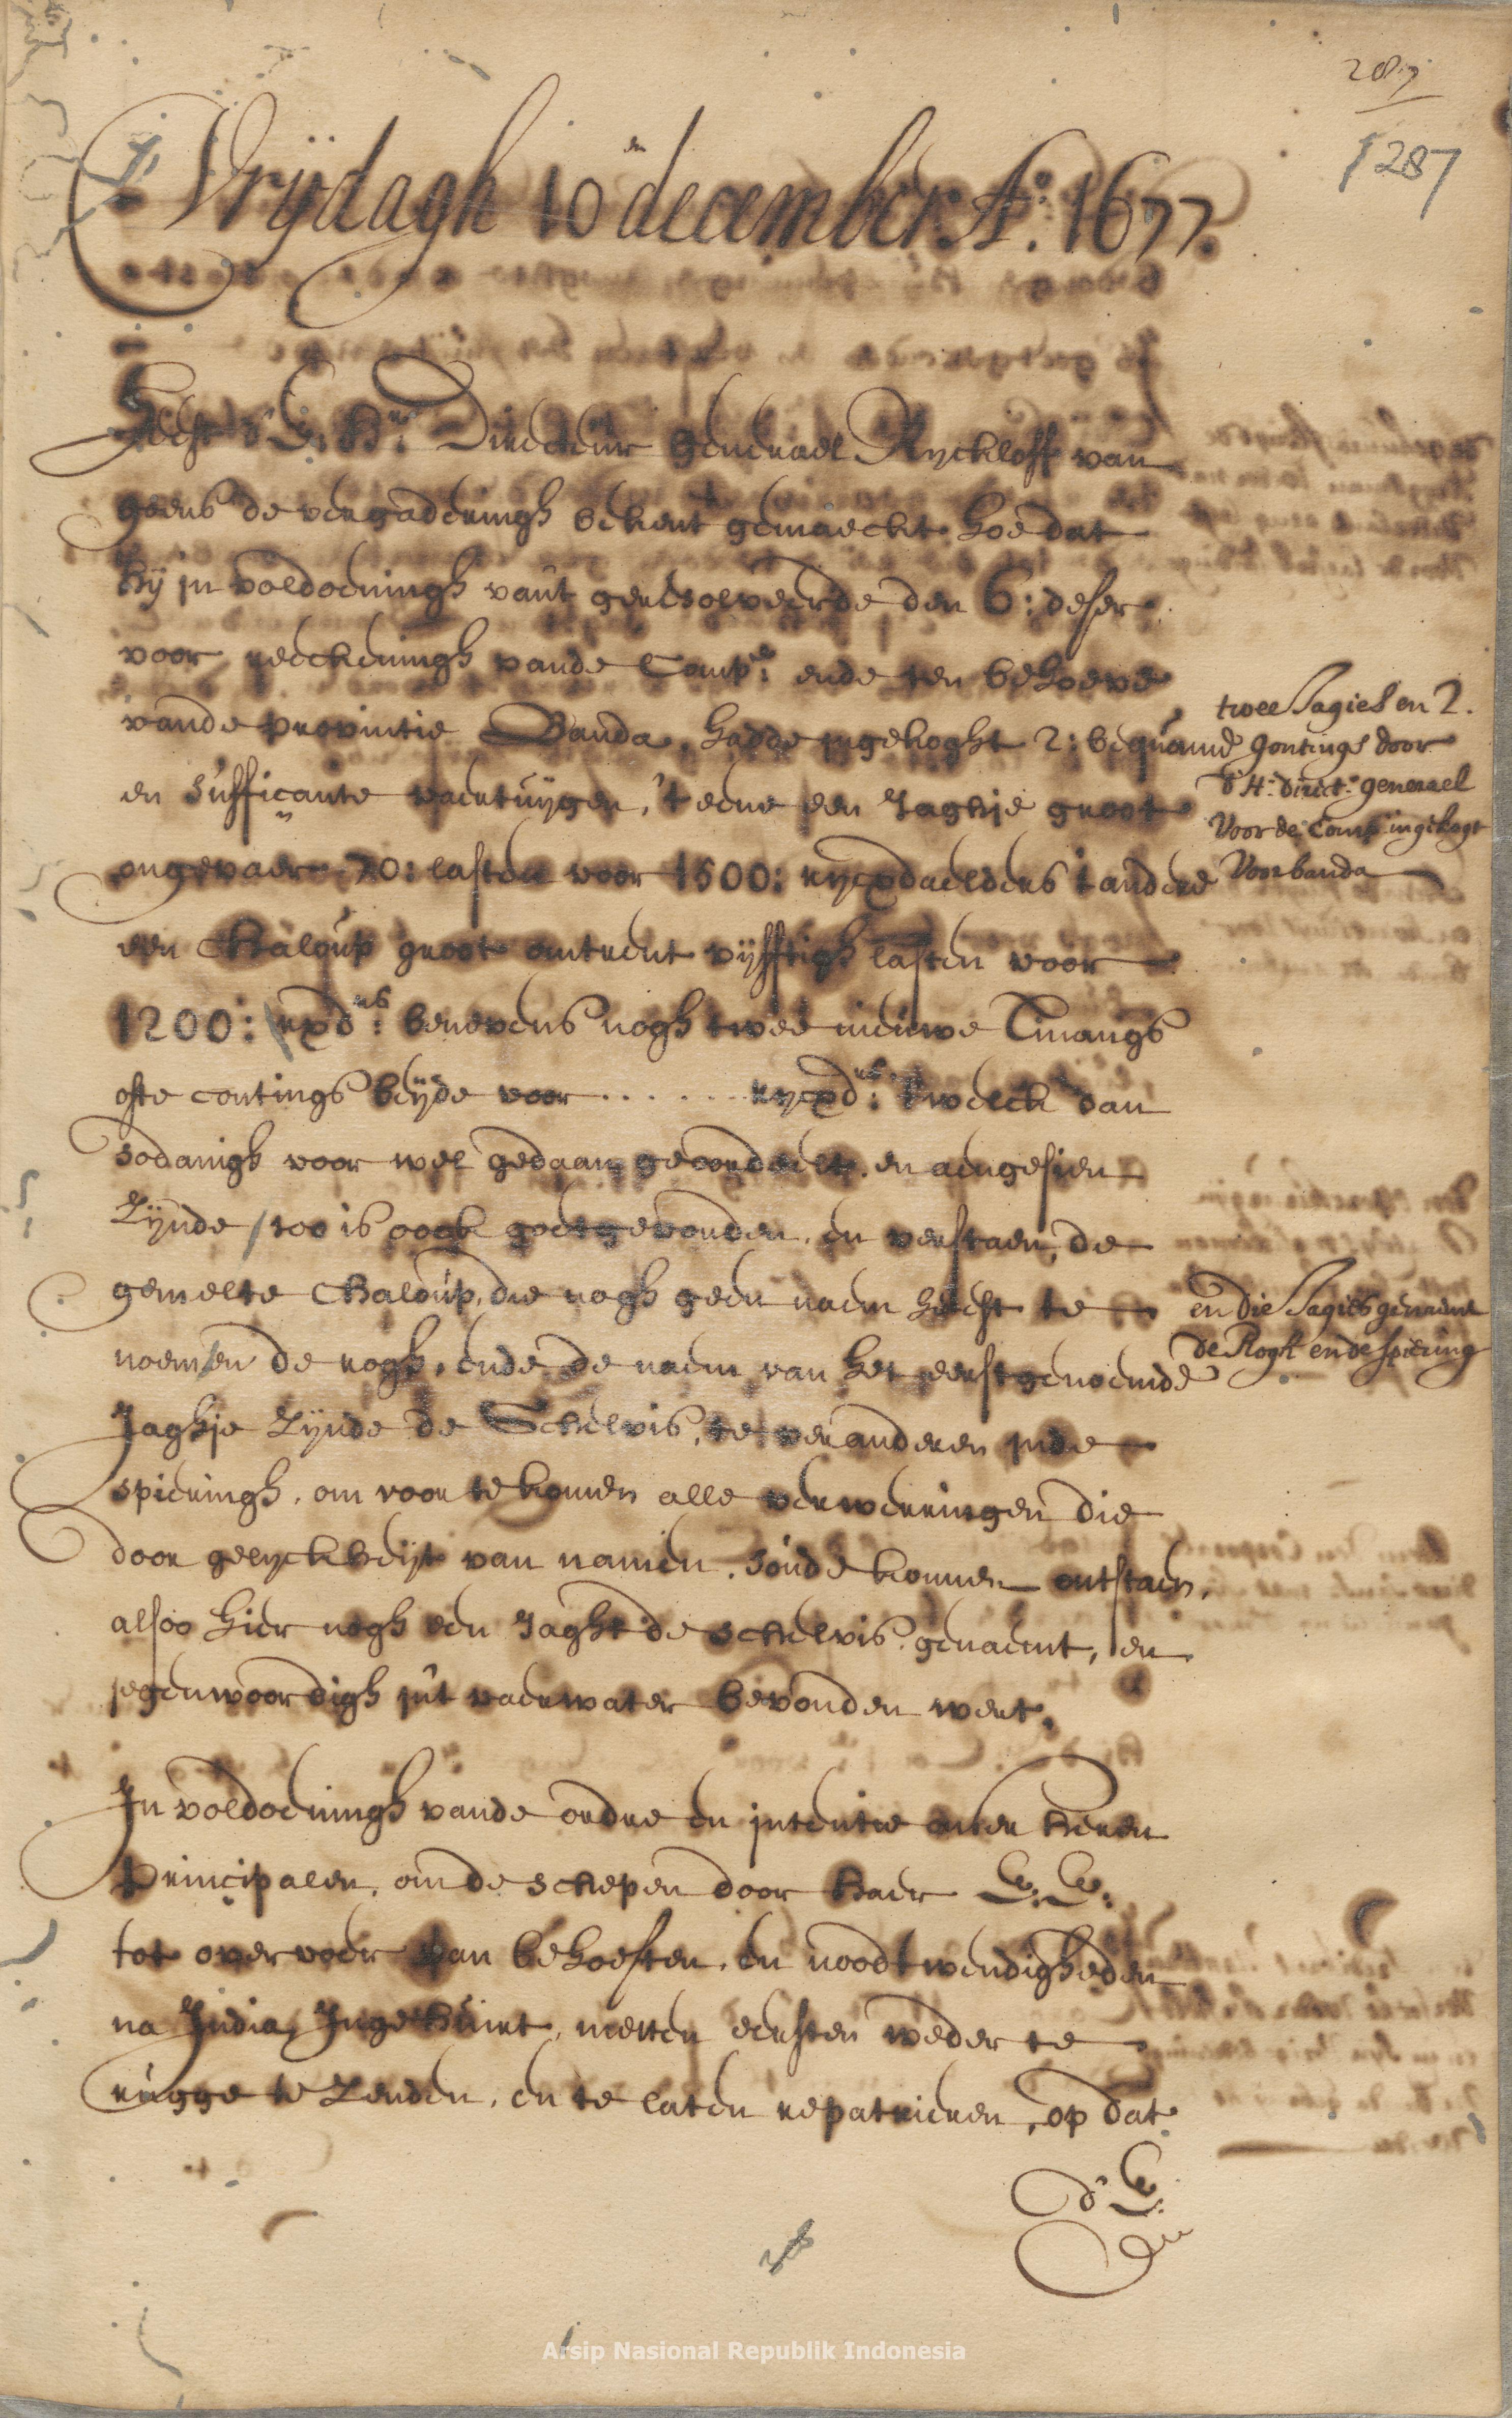 287
287
Vrijdagh 10en december Ao. 1677.
Heeft d'E: Hr. Directeur Generael Ryckloff van
goens de vergaderingh bekent gemaeckt hoe dat
hij in voldoeningh vant geresolveerde den 6: deser
voor reeckeningh vande Compe: ende ten behoeve
vande provintie Banda, hadde ingekoght 2: bequame
en sufficante vaertuijgen, 't eene een Jaghje groot
ongevaer 70: lasten voor 1500: rycxdaelders 't andere
een Chaloup groot omtrent vijfftigh lasten voor
1200: rxdrs: benevens nogh twee nieuwe
ofte contings beijde voor . . . . . . . rycxdrs: 't welck dan
sodanigh voor wel gedaan geoordeelt en aengesien
Zijnde / soo is oock goetgevonden, en verstaen, de
gemelte Chaloup, die nogh geen naem heeft te
noemen de rogh, ende de naem van het eerstgenoemde
Jaghje Zijnde de Schelvis, te veranderen inde
spieringh, om voor te komen alle verwerringen die
door gelyckheijt van namen, soude konnen ontstaen,
alsoo hier nogh een Jaght de schelvis genaemt, en
jegenwoordigh int vaerwater bevonden wert.
twee Jagies en 2.
gontings door
d'H: direct: generael
Voor de Comp: ingekogt
Voor banda
en die Jagies genaemt
de Rogh en de spiering
In voldoeningh vande ordre en intentie onser heren
Principalen, om de schepen door haer E: E:
tot overvoer van behoeften, en noodtwendigheden
na India, Ingehuurt, metten eersten weder te
rugge te Zenden, en te laten repatrieren, op dat
d'E:
Arsip Nasional Republik Indonesia